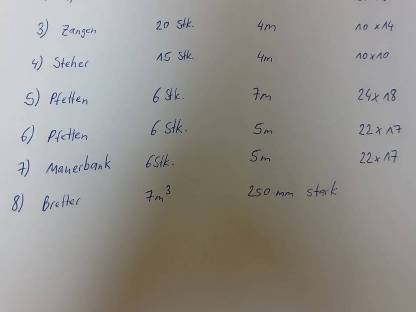 3) Zangen 20 Stk. 4m 10 x 14
4) Steher 15 Stk. 4m 10x10
5) Pfetten 6 Stk. 7m 24x18
6) Pfetten 6 Stk. 5m 22x17
7) Mauerbank 6Stk. 5m 22x17
8) Bretter 7m³ 250 mm stark